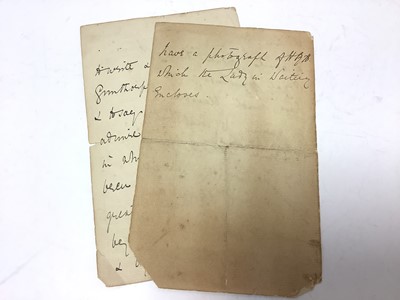 H write a
& H says
admire
in wh
been
great
beg
&
have a photograph of H R H
which the Lady in Waiting
Encloses.